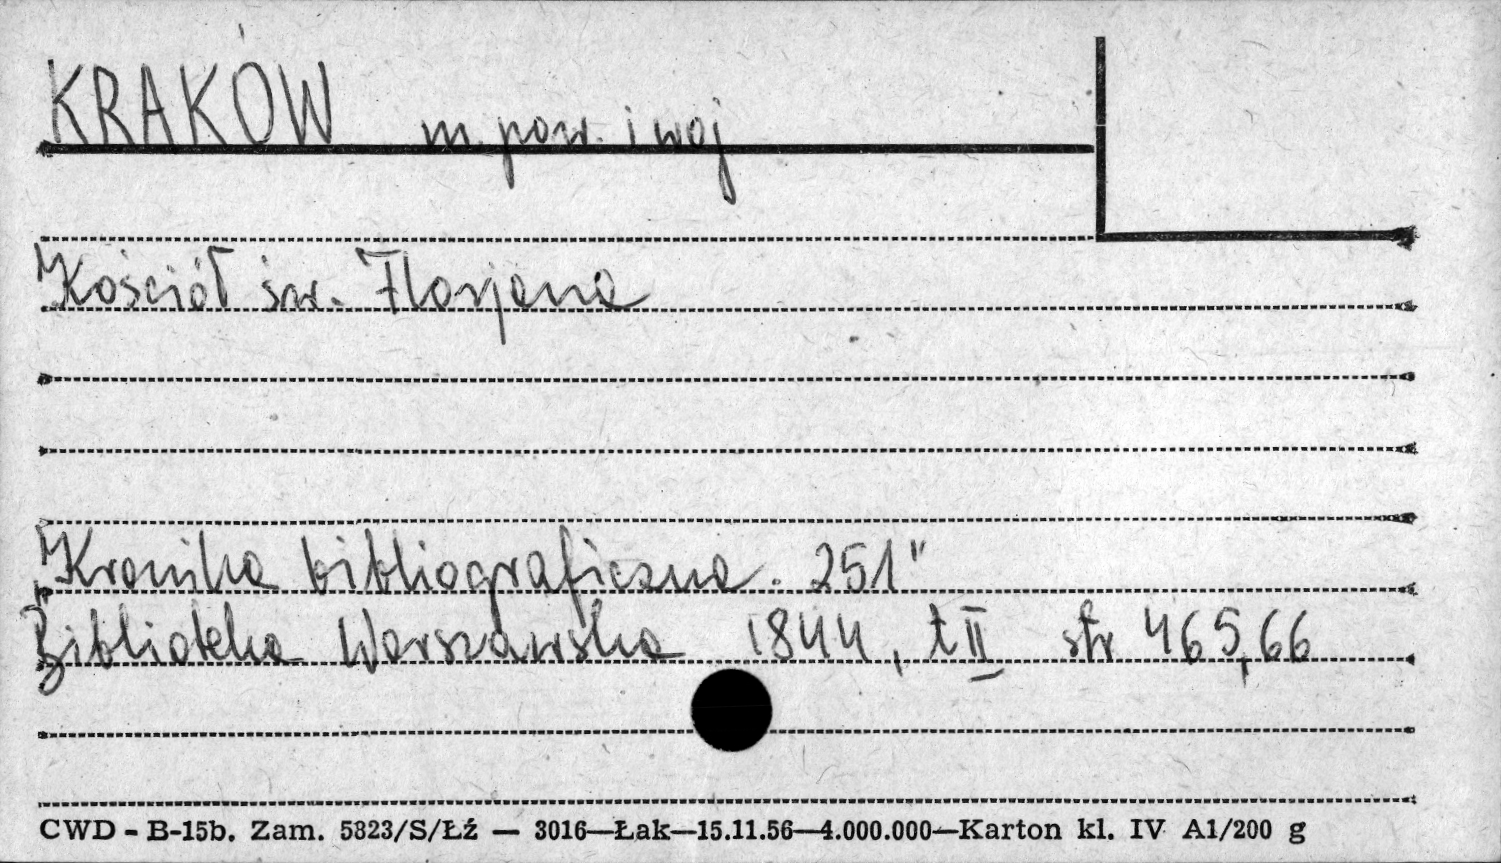 KRAKÓW m. pow. i woj
Kościół św. Florjana
"Kronika bibliograficzna. 251"
Biblioteka Warszawska 1844, t II str 465,66
CWD - B-15b. Zam. 5823/S/Łź — 3016—Łak—15.11.56—4.000.000—Karton kl. IV A1/200 g